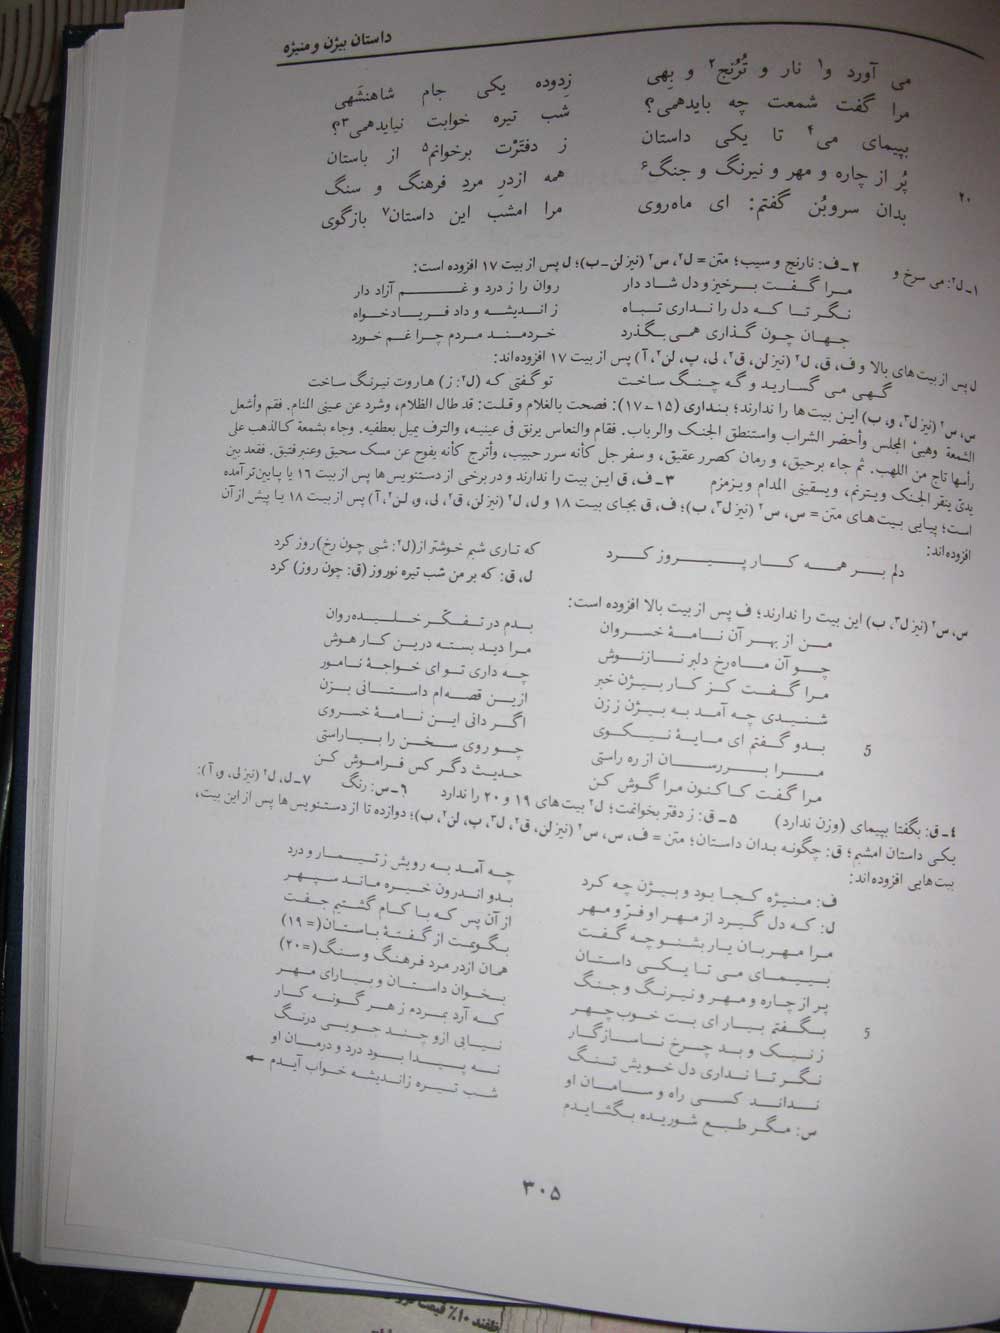 داستان بیژن و منیژه
می آورد و۱ نار و تُرُنج۲ و بِهی زِدوده یکی جام شاهنشَهی
مرا گفت شمعت چه بایدهمی؟ شَب تیره خوابت نیایدهمی۳؟
بپیمای می۴ تا یکی داستان ز دفتَرْت برخوانم۵ از باستان
پُر از چاره و مهر و نیرنگ و جنگ۶ همه ازدرِ مردِ فرهنگ و سنگ
۲۰ بدان سروبُن گفتم: ای ماه‌روی مرا امشب این داستان۷ بازگوی
۱ـ ل۲: می سرخ و ۲ـ ف: نارنج و سیب؛ متن = ل۲، س۲ (نیز لن ـ ب)؛ ل پس از بیت ۱۷ افزوده است:
مرا گفت برخیز و دل شاد دار روان را ز درد و غم آزاد دار
نگر تا که دل را نداری تباه ز اندیشه و داد فریاد خواه
جهان چون گذاری همی بگذرد خردمند مردم چرا غم خورد
ل پس از بیت‌های بالا و ف، ق، ل۲ (نیز لن، ق۲، لی، پ، لن۲، آ) پس از بیت ۱۷ افزوده‌اند:
گهی می گسارید و گه چنگ ساخت تو گفتی که (ل۲: ز) هاروت نیرنگ ساخت
س، س۲ (نیز ل۳، و، ب) این بیت‌ها را ندارند؛ بنداری (۱۵ـ۱۷): فصحت بالغلام و قلت: قد طال الظلام، وشرد عن عینی المنام. فقم وأشعل
الشمعة وهیئ المجلس وأحضر الشراب واستنطق الجنک والرباب. فقام والنعاس یرنق فی عینیه، والترف یمیل بعطفیه. وجاء بشمعة کالذهب علی
رأسها تاج من اللهب. ثم جاء برحیق، و رمان کصرر عقیق، و سفرجل کأنه سرر حبیب، وأترج کأنه یفوح عن مسک سحیق وعنبر فتیق. فقعد بین
یدیّ ینقر الجنک ویترنم، ویسقینی المدام ویزمزم ۳ـ ف، ق این بیت را ندارند و در برخی از دستنویس‌ها پس از بیت ۱۶ یا پایین‌تر آمده
است؛ پیاپی بیت‌های متن = س، س۲ (نیز ل۳، ب)؛ ف، ق بجای بیت ۱۸ و ل، ل۲ (نیز لن، ق۲، لی، و، لن۲، آ) پس از بیت ۱۸ یا پیش از آن
افزوده‌اند:
دلم بر همه کار پیروز کرد که تاری شبم خوشتر از (ل۲: شبی چون رخ) روز کرد
ل، ق: که بر من شب تیره نوروز (ق: چون روز) کرد
س، س۲ (نیز ل۳، ب) این بیت را ندارند؛ ف پس از بیت بالا افزوده است:
من از بهر آن نامهٔ خسروان بدم در تفکّر خلیده‌روان
چو آن ماه‌رخ دلبر نازنوش مرا دید بسته درین کار هوش
مرا گفت کز کار بیژن خبر چه داری تو ای خواجهٔ نامور
شنیدی چه آمد به بیژن ز زن ازین قصه‌ام داستانی بزن
5 بدو گفتم ای مایهٔ نیکوی اگر دانی این نامهٔ خسروی
مرا بررسان از ره راستی چو روی سخن را بیاراستی
مرا گفت کاکنون مرا گوش کن حدیث دگر کس فراموش کن
۴ـ ق: بگفتا بپیمای (وزن ندارد) ۵ـ ق: ز دفتر بخوانمت؛ ل۲ بیت‌های ۱۹ و ۲۰ را ندارد ۶ـ س: رنگ ۷ـ ل، ل۲ (نیز لی، و، آ):
یکی داستان امشبم؛ ق: چگونه بدان داستان؛ متن = ف، س، س۲ (نیز لن، ق۲، ل۳، پ، لن۲، ب)؛ دوازده تا از دستنویس‌ها پس از این بیت،
بیت‌هایی افزوده‌اند:
ف: منیژه کجا بود و بیژن چه کرد چه آمد به رویش ز تیمار و درد
ل: که دل گیرد از مهر او فرّ و مهر بدو اندرون خیره ماند سپهر
مرا مهربان یار بشنو چه گفت از آن پس که با کام گشتیم جفت
بپیمای می تا یکی داستان بگویمت از گفتهٔ باستان (= ۱۹)
پر از چاره و مهر و نیرنگ و جنگ همان ازدر مرد فرهنگ و سنگ (= ۲۰)
5 بگفتم بیار ای بت خوب‌چهر بخوان داستان و بیارای مهر
ز نیک و بد چرخ ناسازگار که آرد بمردم ز هر گونه کار
نگر تا نداری دل خویش تنگ نیابی ازو چند جویی درنگ
نداند کسی راه و سامان او نه پیدا بود درد و درمان او
س: مگر طبع شوریده بگشایدم شب تیره زاندیشه خواب آیدم ←
۳۰۵